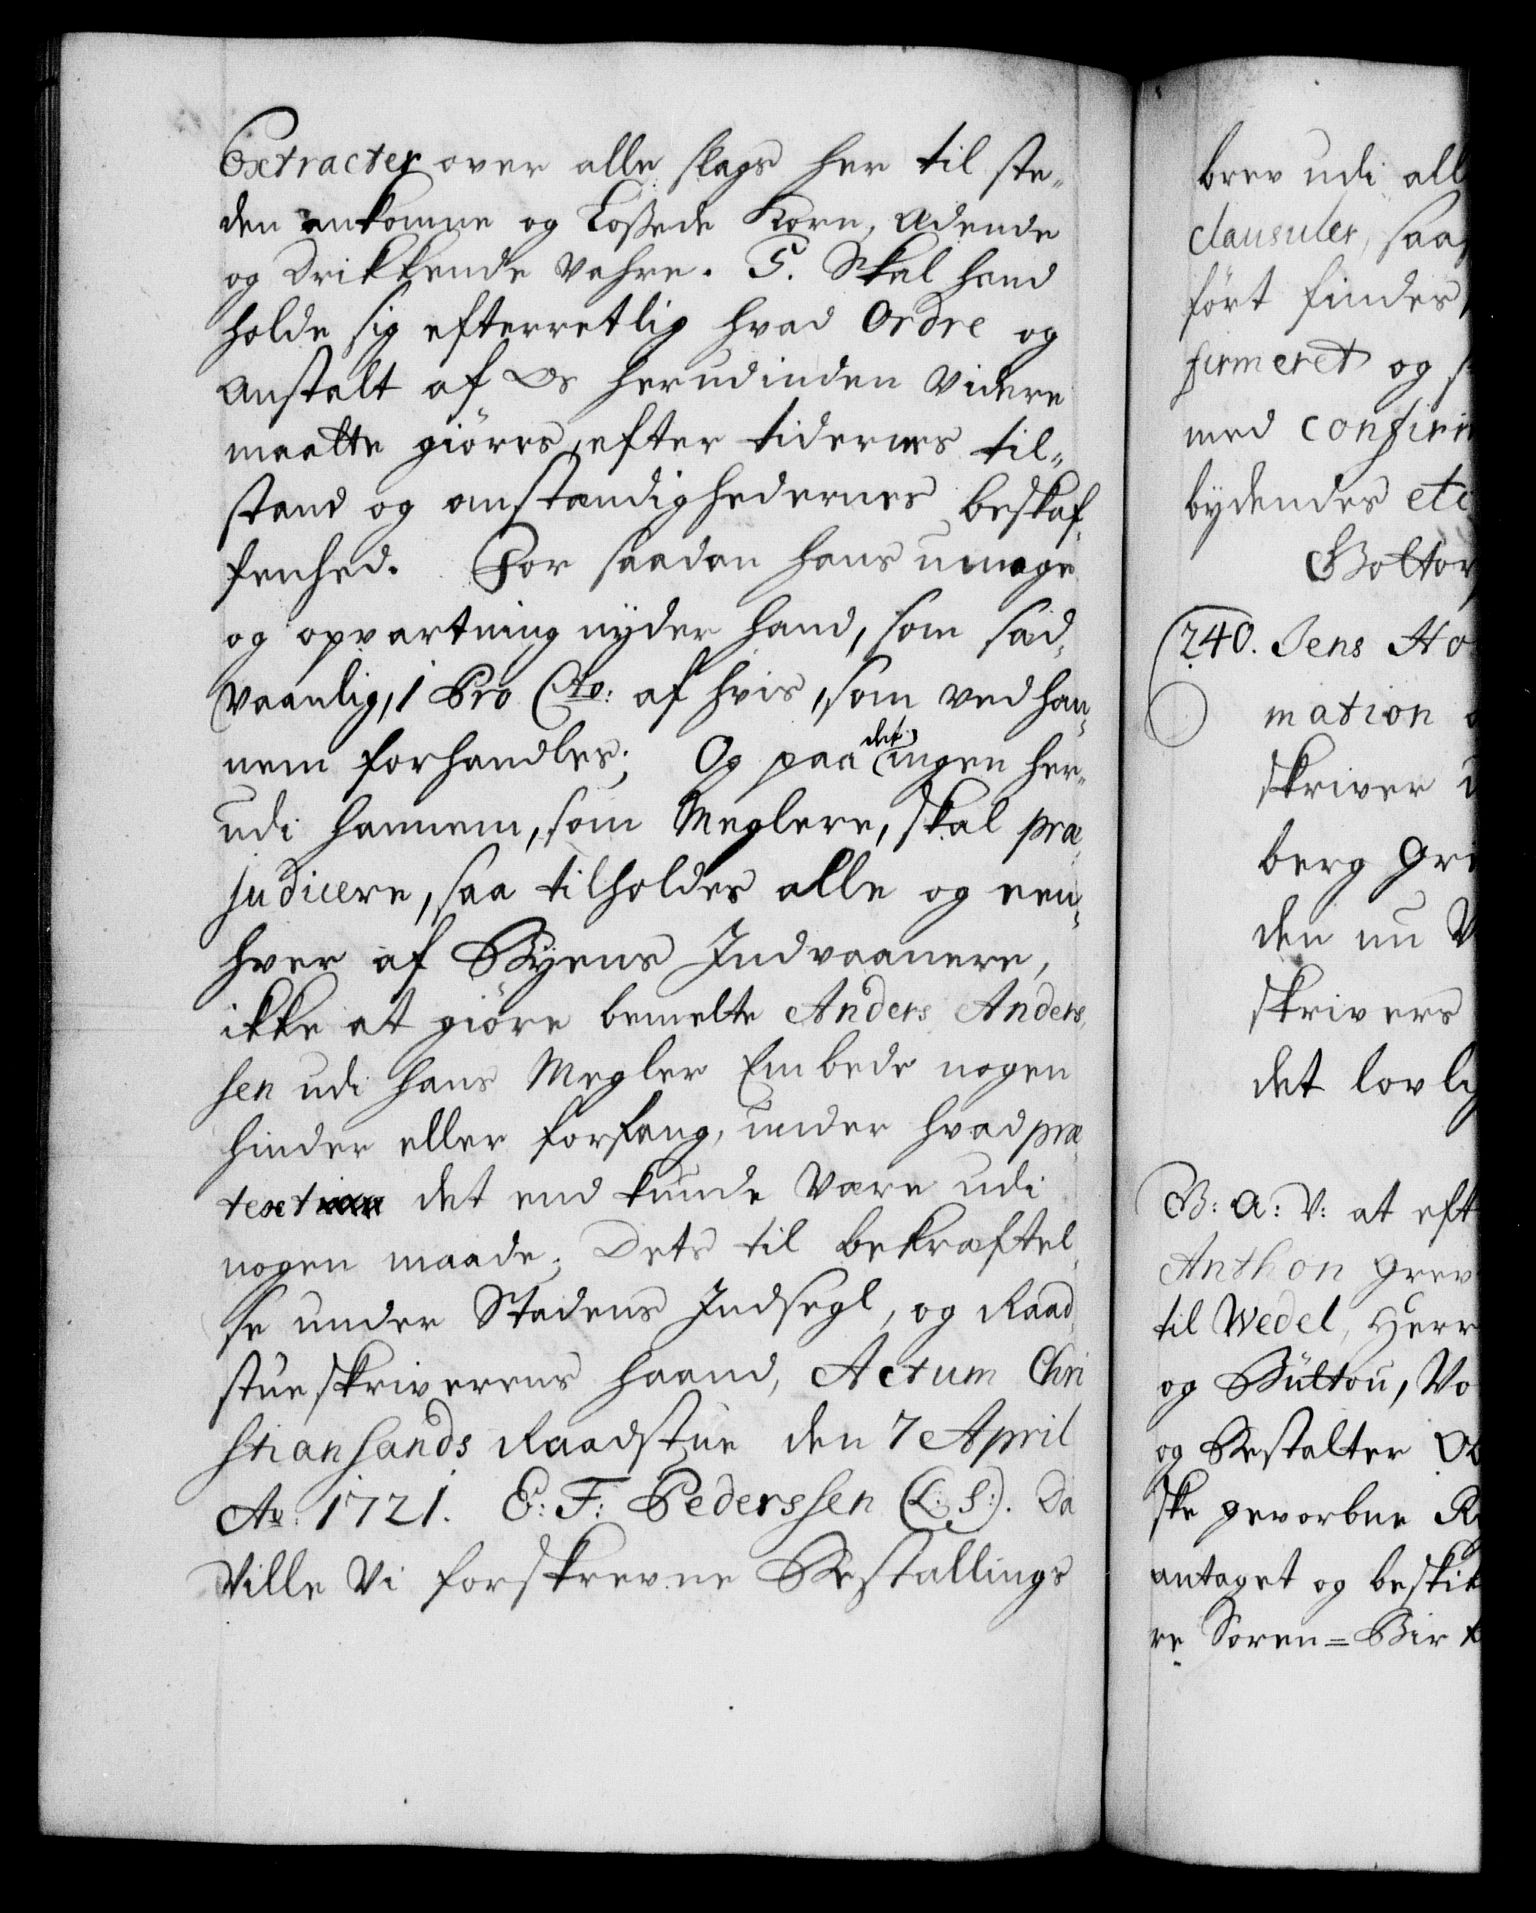 Extracter over alle slags her til ste„
den ankomne og Lossede Korn, Ædende
og Drikkende Vahre. 5. Skal hand
holde sig efterretlig hvad Ordre og
Anstalt af Os herudinden Videre
maatte giöres, efter tidernes til„
stand og omstændighedernes beskaf„
fenhed. For saadan hans umage
og opvartning nÿder hand, som sæd„
vaanlig, 1 Pro Cto: af hvis, som ved han„
nem forhandles; Og paa det ingen her„
udi hannem, som Meglere, skal præ„
judicere, saa tilholdes alle og een„
hver af Byens Indvaanere,
ikke at giöre bemelte Anders Anders„
sen udi hans Megler Embede nogen
hinder eller forfang, under hvad præ„
text det end kunde Være udi
nogen maade; Dets til bekræftel„
se under Stadens Indsegl, og Raad„
stueskriverens haand, Actum Chri
stiansands Raadstue den 7 April
Ao: 1721. E: F: Pederssen (L: S:). Da
Ville Vi forskrevne Bestallings
brev udi all
clausuler, saa
fört findes,
firmeret og s
med confirm
bÿdendes etc
Gottor
240. Jens Ho
mation
skriver
berg gre
den nu V
skrivers
det lovlig
G: A: V: at eft
Anthon grev
til Wedel, Herr
og Bültou, Vo
og Bestalter Ob
ske gevorbne R
antaget og beskik
re Soren=Birk